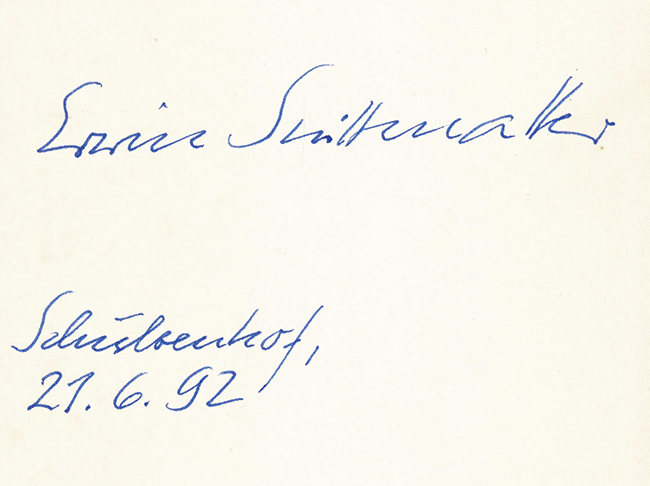 Erwin Strittmatter
Schulzenhof,
21. 6. 92